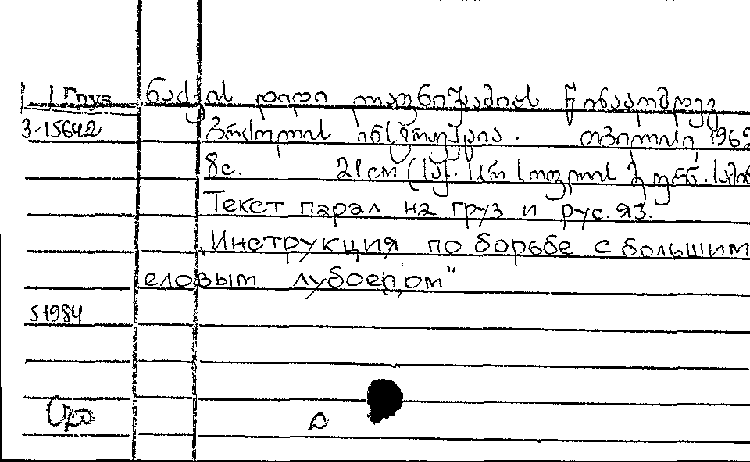 Груз ნაძვის დიდი ლაფნიჭამიას წინააღმდეგ
3-15642 ბრძოლის ინსტრუქცია. თბილისი, 196
8с. 21см (საქ. სსრ სოფლის მეურნ. სამინ
Текст парал на груз и рус. яз.
„Инструкция по борьбе с большим
еловым лубоедом"
51984